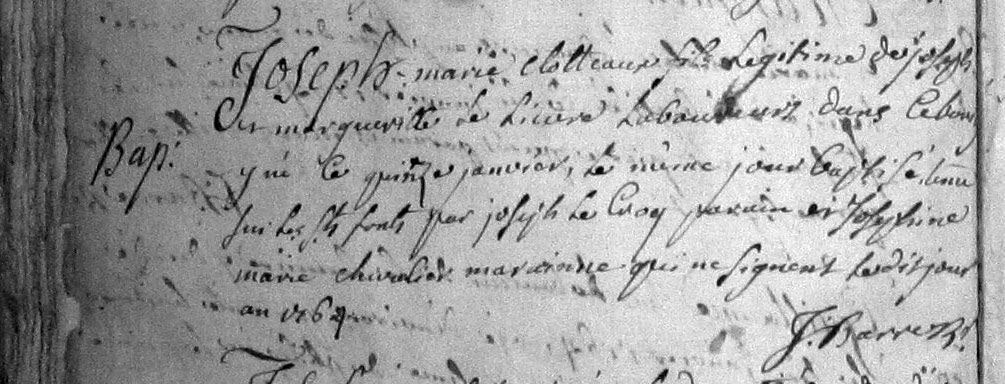 Joseph marie Clotteaux fils Legitime de joseph
Et margueritte Le Liciere Laboureurs dans le bourg
Bap:
y né le quinze janvier, le même jour baptisé, tenu
sur les Sts fonts par joseph Le Croq parain et Josephine
marie chevalier maraine qui ne signent ledit jour
an 1764
J. Barre Rr